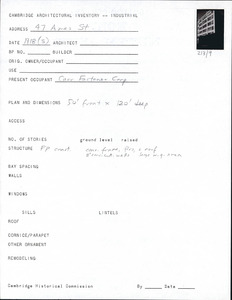 CAMBRIDGE ARCHITECTURAL INVENTORY -- INDUSTRIAL
ADDRESS 47 Ames St
DATE ARCHITECT
BP NO. BUILDER
ORIG. OWNER/OCCUPANT
USE
PRESENT OCCUPANT Corp
PLAN AND DIMENSIONS 50' front x 120' deep
ACCESS
NO. OF STORIES ground level raised
STRUCTURE FP const.
BAY SPACING
WALLS
WINDOWS
SILLS LINTELS
ROOF
CORNICE/PARAPET
OTHER ORNAMENT
REMODELING
Cambridge Historical Commission By Date